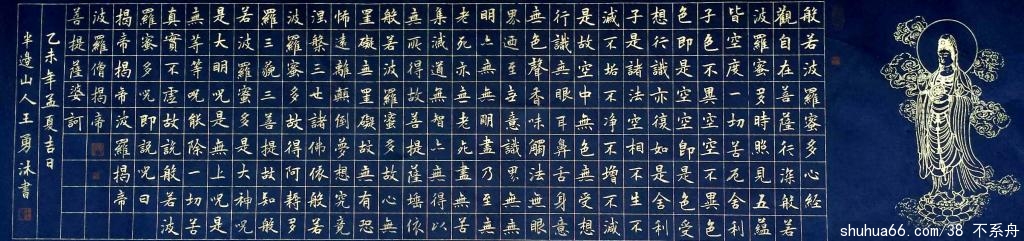 般若波羅蜜多心經
觀自在菩薩行深般若
波羅蜜多時照見五蘊
皆空度一切苦厄舍利
子色不異空空不異色
色即是空空即是色受
想行識亦復如是舍利
子是諸法空相不生不
滅不垢不淨不增不減
是故空中無色無受想
行識無眼耳鼻舌身意
無色聲香味觸法無眼
界乃至無意識界無無
明亦無無明盡乃至無
老死亦無老死盡無苦
集滅道無智亦無得以
無所得故菩提薩埵依
般若波羅蜜多故心無
罣礙無罣礙故無有恐
怖遠離顛倒夢想究竟
涅槃三世諸佛依般若
波羅蜜多故得阿耨多
羅三藐三菩提故知般
若波羅蜜多是大神咒
是大明咒是無上咒是
無等等咒能除一切苦
真實不虛故說般若波
羅蜜多咒即說咒曰
揭帝揭帝波羅揭帝
波羅僧揭帝
菩提薩婆訶
乙未年孟夏吉日
半邊山人王勇沐書
shuhua66.com/38 不系舟